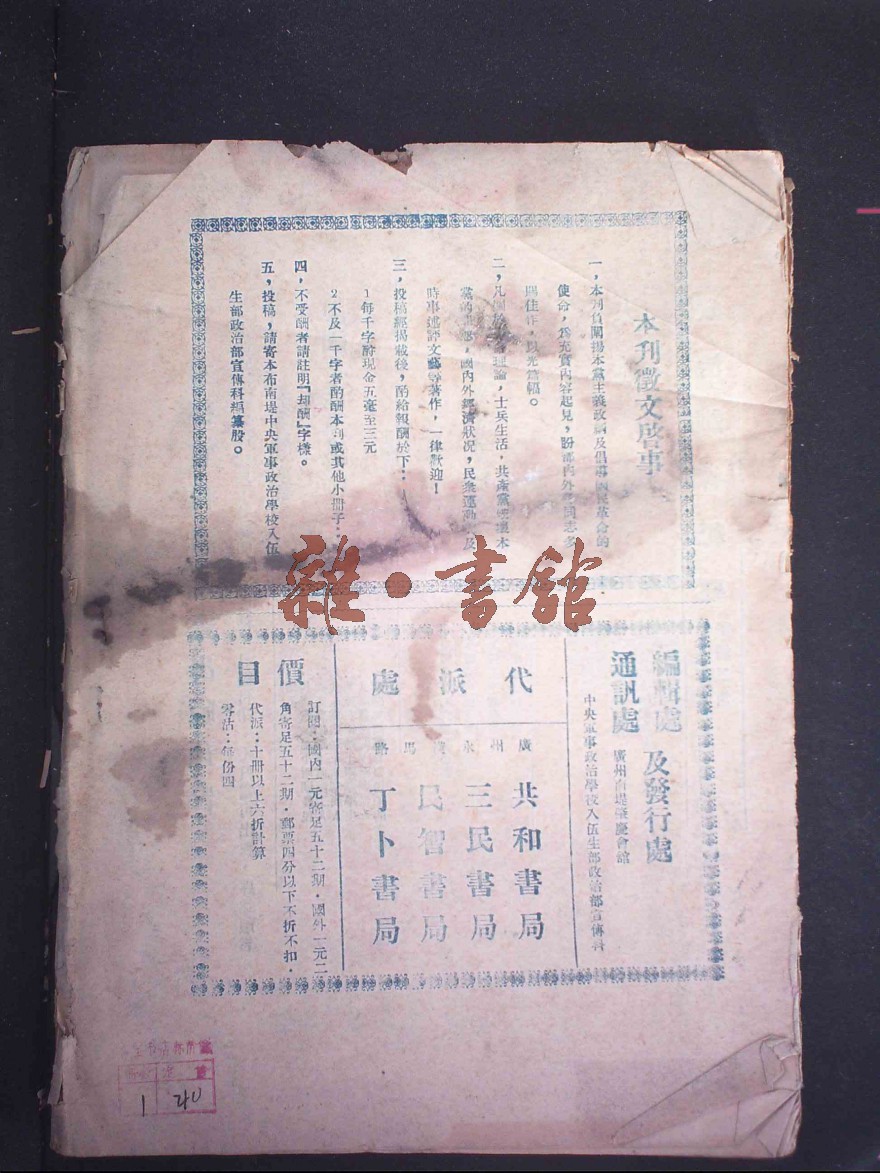 本刊徵文啓事
一，本刊負闡揚本黨主義政綱及倡導國民革命的
使命，爲充實內容起見，盼黨內外同志多
賜佳作，以光篇幅。
二，凡關於理論，士兵生活，共產黨本
黨的，國內外經濟狀況，民衆運動及
時事述評文藝等著作，一律歡迎！
三，投稿經揭載後，酌給報酬於下：
1 每千字酬現金五毫至三元
2 不及一千字者酌酬本刊或其他小冊子。
四，不受酬者請註明「却酬」字樣。
五，投稿，請寄本市南堤中央軍事政治學校入伍
生部政治部宣傳科編纂股。
編輯處 及發行處
中央軍事政治學校入伍生部政治部宣傳科
通訊處 廣州南堤肇慶會館
代派處
廣州永漢馬路
共和書局
三民書局
民智書局
丁卜書局
價目
訂閱：國內一元寄足五十二期，國外一元二
角寄足五十二期，郵票四分以下不折不扣，
代派：十冊以上六折計算
零沽：每份四
雜·書館
1 240